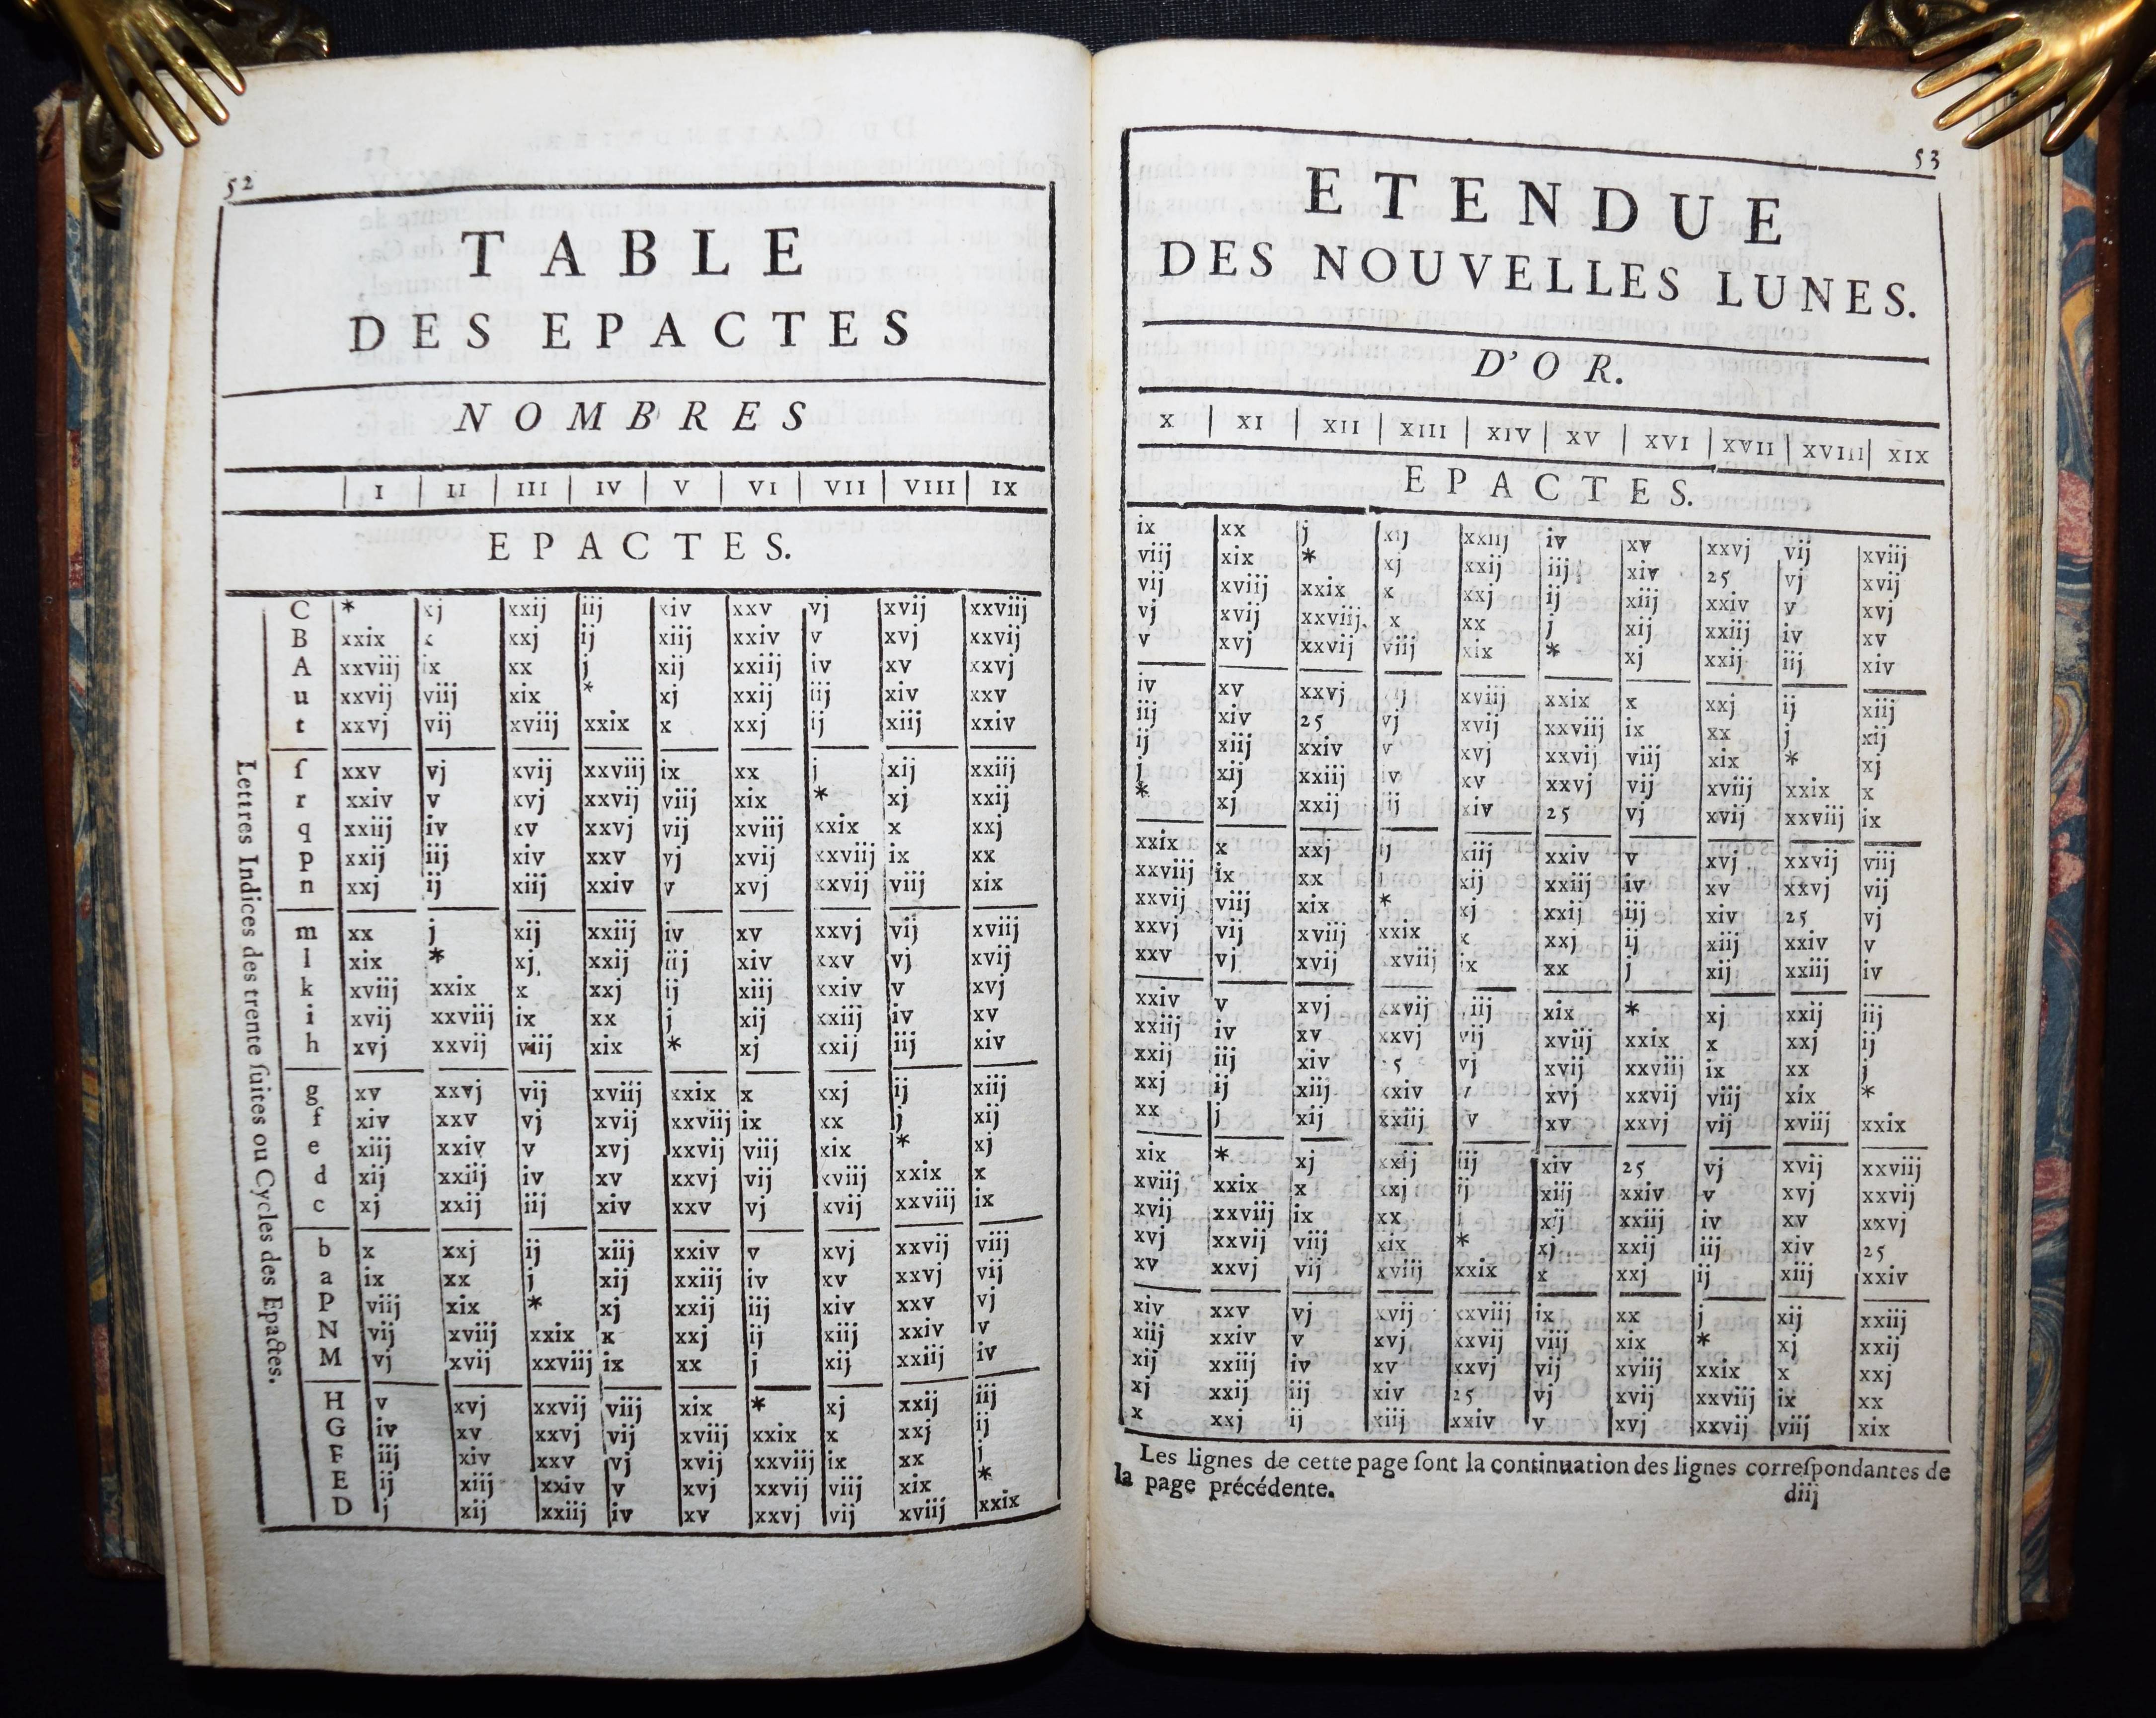 52
TABLE
DES EPACTES
NOMBRES
I II III IV V VI VII VIII IX
EPACTES.
Lettres Indices des trente ſuites ou Cycles des Epactes.
C * xj xxij iij xiv xxv vj xvij xxviij
B xxix x xxj ij xiij xxiv v xvj xxvij
A xxviij ix xx j xij xxiij iv xv xxvj
u xxvij viij xix * xj xxij iij xiv xxv
t xxvj vij xviij xxix x xxj ij xiij xxiv
ſ xxv vj xvij xxviij ix xx j xij xxiij
r xxiv v xvj xxvij viij xix * xj xxij
q xxiij iv xv xxvj vij xviij xxix x xxj
p xxij iij xiv xxv vj xvij xxviij ix xx
n xxj ij xiij xxiv v xvj xxvij viij xix
m xx j xij xxiij iv xv xxvj vij xviij
l xix * xj xxij iij xiv xxv vj xvij
k xviij xxix x xxj ij xiij xxiv v xvj
i xvij xxviij ix xx j xij xxiij iv xv
h xvj xxvij viij xix * xj xxij iij xiv
g xv xxvj vij xviij xxix x xxj ij xiij
f xiv xxv vj xvij xxviij ix xx j xij
e xiij xxiv v xvj xxvij viij xix * xj
d xij xxiij iv xv xxvj vij xviij xxix x
c xj xxij iij xiv xxv vj xvij xxviij ix
b x xxj ij xiij xxiv v xvj xxvij viij
a ix xx j xij xxiij iv xv xxvj vij
P viij xix * xj xxij iij xiv xxv vj
N vij xviij xxix x xxj ij xiij xxiv v
M vj xvij xxviij ix xx j xij xxiij iv
H v xvj xxvij viij xix * xj xxij iij
G iv xv xxvj vij xviij xxix x xxj ij
F iij xiv xxv vj xvij xxviij ix xx j
E ij xiij xxiv v xvj xxvij viij xix *
D j xij xxiij iv xv xxvj vij xviij xxix
53
ETENDUE
DES NOUVELLES LUNES.
D'OR.
X XI XII XIII XIV XV XVI XVII XVIII XIX
EPACTES.
ix xx j xij xxiij iv xv xxvj vij xviij
viij xix * xj xxij iij xiv 25 vj xvij
vij xviij xxix x xxj ij xiij xxiv v xvj
vj xvij xxviij x xx j xij xxiij iv xv
v xvj xxvij viij xix * xj xxij iij xiv
iv xv xxvj ij xviij xxix x xxj ij xiij
iij xiv 25 vj xvij xxviij ix xx j xij
ij xiij xxiv v xvj xxvij viij xix * xj
j xij xxiij v xv xxvj vij xviij xxix x
* xj xxij iij xiv 25 vj xvij xxviij ix
xxix x xxj ij xiij xxiv v xvj xxvij viij
xxviij ix xx j xij xxiij iv xv xxvj vij
xxvij viij xix * xj xxij iij xiv 25 vj
xxvj vij xviij xxix x xxj ij xiij xxiv v
xxv vj xvij xxviij ix xx j xij xxiij iv
xxiv v xvj xxvij viij xix * xj xxij iij
xxiij iv xv xxvj vij xviij xxix x xxj ij
xxij iij xiv 5 vj xvij xxviij ix xx j
xxj ij xiij xxiv v xvj xxvij viij xix *
xx j xij xxiij v xv xxvj vij xviij xxix
xix * xj xxij iij xiv 25 vj xvij xxviij
xviij xxix x xxj ij xiij xxiv v xvj xxvij
xvij xxviij ix xx j xij xxiij iv xv xxvj
xvj xxvij viij xix * xj xxij iij xiv 25
xv xxvj vij xviij xxix x xxj ij xiij xxiv
xiv xxv vj xvij xxviij ix xx j xij xxiij
xiij xxiv v xvj xxvij viij xix * xj xxij
xij xxiij iv xv xxvj vij xviij xxix x xxj
xj xxij iij xiv 25 vj xvij xxviij ix xx
x xxj ij xiij xxiv v xvj xxvij viij xix
Les lignes de cette page ſont la continuation des lignes correſpondantes de
la page précédente.
diij